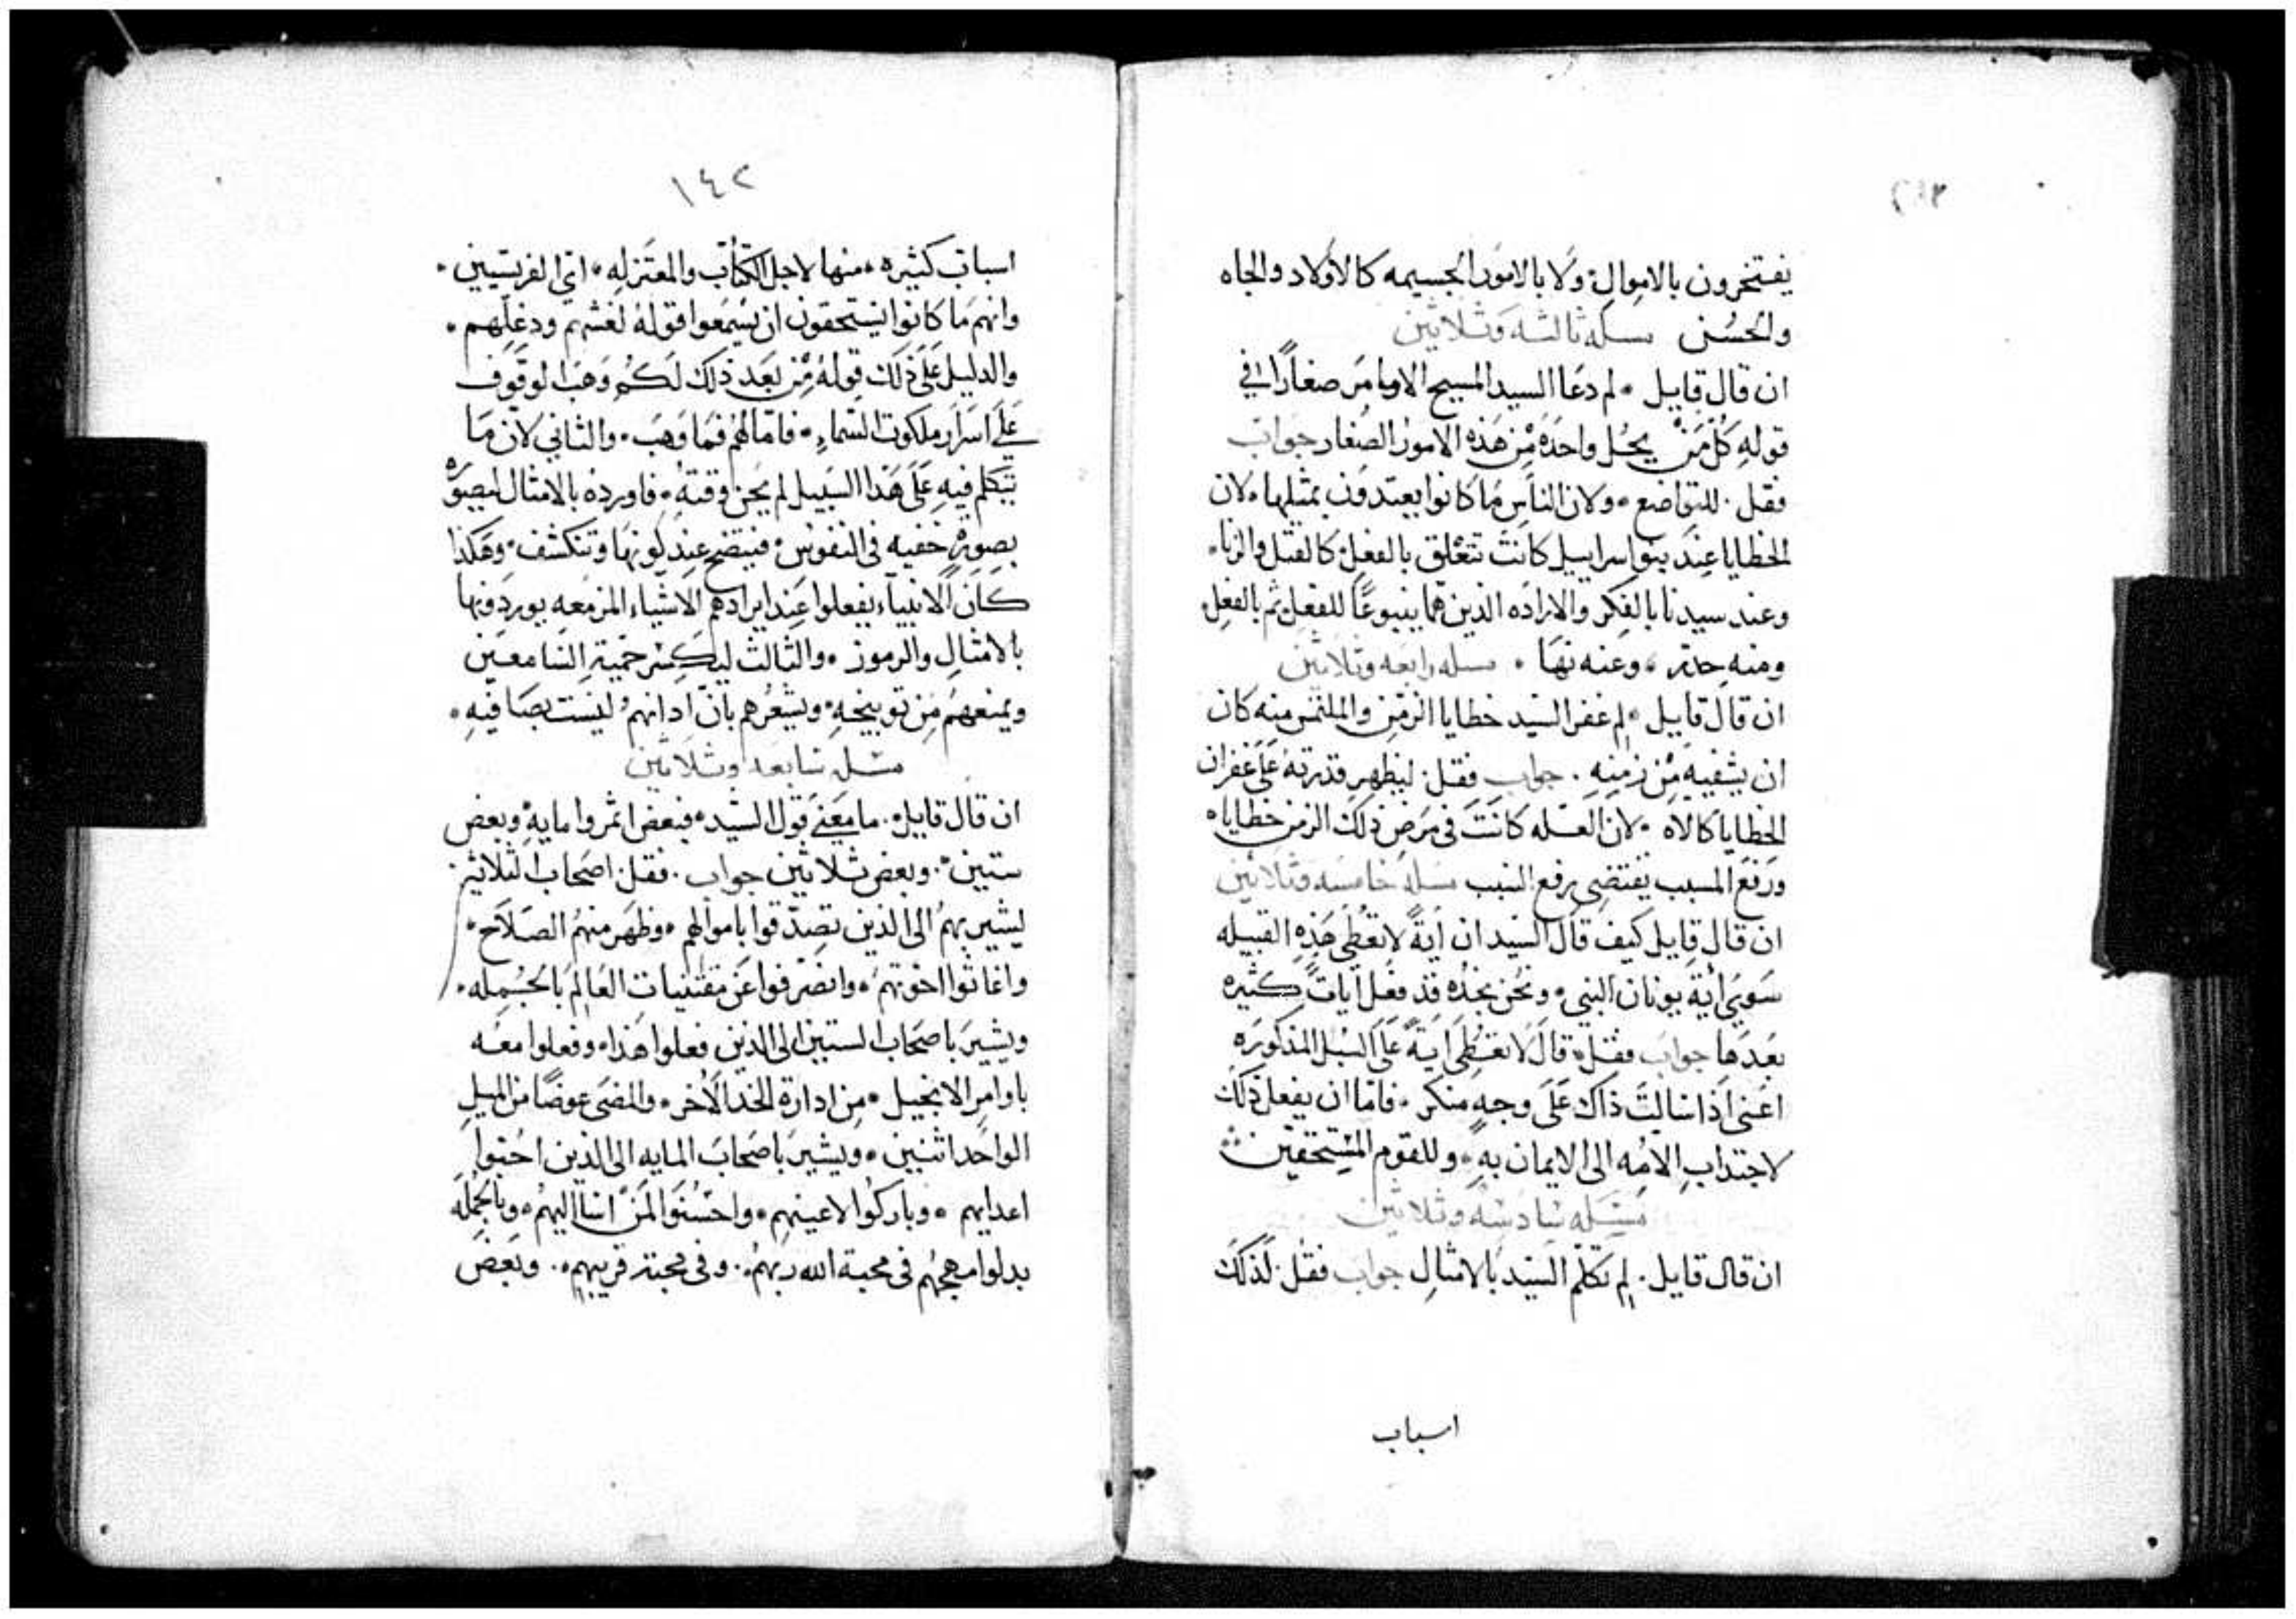 يفتخرون بالاموال ولا بالامور الجسيمه كالاولاد والجاه
والحسن مسله ثالثه وثلاثين
ان قال قايل لم دعا السيد المسيح الاوامر صغارًا في
قوله كل من يحل واحده من هذه الامور الصغار جواب
فقل للتواضع ولان الناس ما كانوا يعتدون بمثلها لان
الخطايا عند بنو اسراييل كانت تتعلق بالفعل كالقتل والزنا
وعند سيدنا بالفكر والاراده الذين هما ينبوعًا للفعل ثم بالفعل
ومنه حذر وعنه نها مسله رابعه وثلاثين
ان قال قايل لم غفر السيد خطايا الزمن والملتمس منه كان
ان يشفيه من زمنه جواب فقل ليظهر قدرته على غفران
الخطايا كالاه لان العله كانت في مرض ذلك الزمن خطاياه
ورفع المسبب يقتضي رفع السبب مسله خامسه وثلاثين
ان قال قايل كيف قال السيد ان ايةً لا تعطى هذه القبيله
سوي اية يونان النبي ونحن نجده قد فعل ايات كثيره
بعدها جواب فقل قال لا تعطى ايةً على السبل المذكوره
اعني اذا سالت ذاك على وجهٍ منكر فاما ان يفعل ذلك
لاجتداب الامه الى الايمان به وللقوم المستحقين
مسله سادسه وثلاثين
ان قال قايل لم تكلم السيد بالامثال جواب فقل لذلك
اسباب
١٤٢
اسباب كثيره منها لاجل الكتاب والمعتزله اي الفريسيين
وانهم ما كانوا يستحقون ان يسمعوا قوله لغشهم ودغلهم
والدليل على ذلك قوله من بعد ذلك لكم وهب الوقوف
على اسرار ملكوت السماء فاما لهم فما وهب والثاني لان ما
يتكلم فيه على هذا السبيل لم يحن وقته فاورده بالامثال ليصوره
بصورة خفيه في النفوس فيتضح عند كونها وتنكشف وهكذا
كان الانبياء يفعلوا عند ايرادهم الاشياء المزمعه يوردونها
بالامثال والرموز والثالث ليكسر حمية السامعين
ويمنعهم من توبيخه ويشعرهم بان ادانهم ليست بصافيه
مسله سابعه وثلاثين
ان قال قايل ما معنى قول السيد فبعض اثمروا مايه وبعض
ستين وبعض ثلاثين جواب فقل اصحاب الثلاثين
ليشير بهم الى الذين تصدقوا باموالهم وظهر منهم الصلاح
واغاثوا اخوتهم وانصرفوا عن مقتنيات العالم بالجمله
ويشير باصحاب الستين الى الذين فعلوا هذا وفعلوا معه
باوامر الانجيل من ادارة الخد الاخر والمضي عوضًا من الميل
الواحد اثنين ويشير باصحاب المايه الى الذين احبوا
اعدايهم وباركوا لاعينهم واحسنوا لمن اسا اليهم وبالجمله
بدلوا مهجهم في محبة الله ربهم وفي محبة قريبهم وبعض